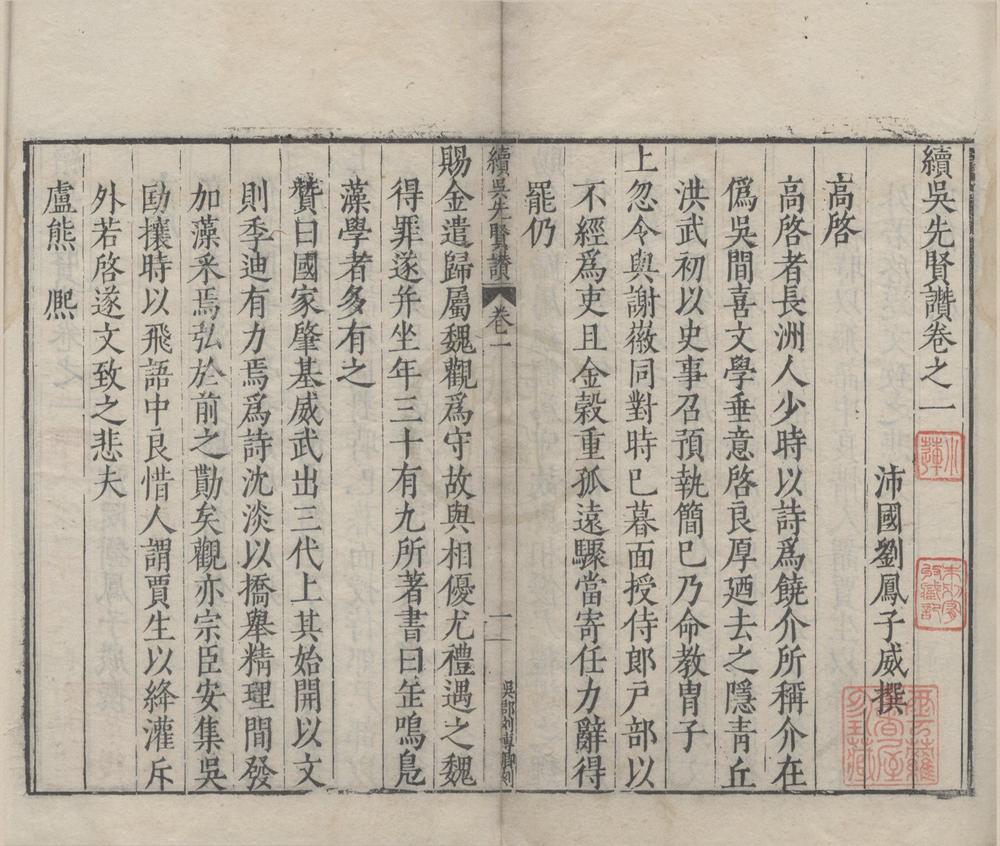 續吳先賢讃卷之一
沛國劉鳳子威撰
高啓
高啓者長洲人少時以詩爲饒介所稱介在
僞吳間喜文學垂意啓良厚廼去之隱青丘
洪武初以史事召預執簡已乃命教冑子
上忽令與謝徽同對時已暮面授侍郎戸部以
不經爲吏且金穀重孤遠驟當寄任力辭得
罷仍
續吳先賢讃
卷一
一
吳郡刘
賜金遣歸屬魏觀爲守故與相優尤禮遇之魏
得罪遂并坐年三十有九所著書曰缶鳴鳬
藻學者多有之
贊曰國家肇基威武出三代上其始開以文
則季迪有力焉爲詩沈淡以撟舉精理間發
加藻釆焉弘於前之勩矣觀亦宗臣安集吳
劻攘時以飛語中良惜人謂賈生以絳灌斥
外若啓遂文致之悲夫
盧熊 熈